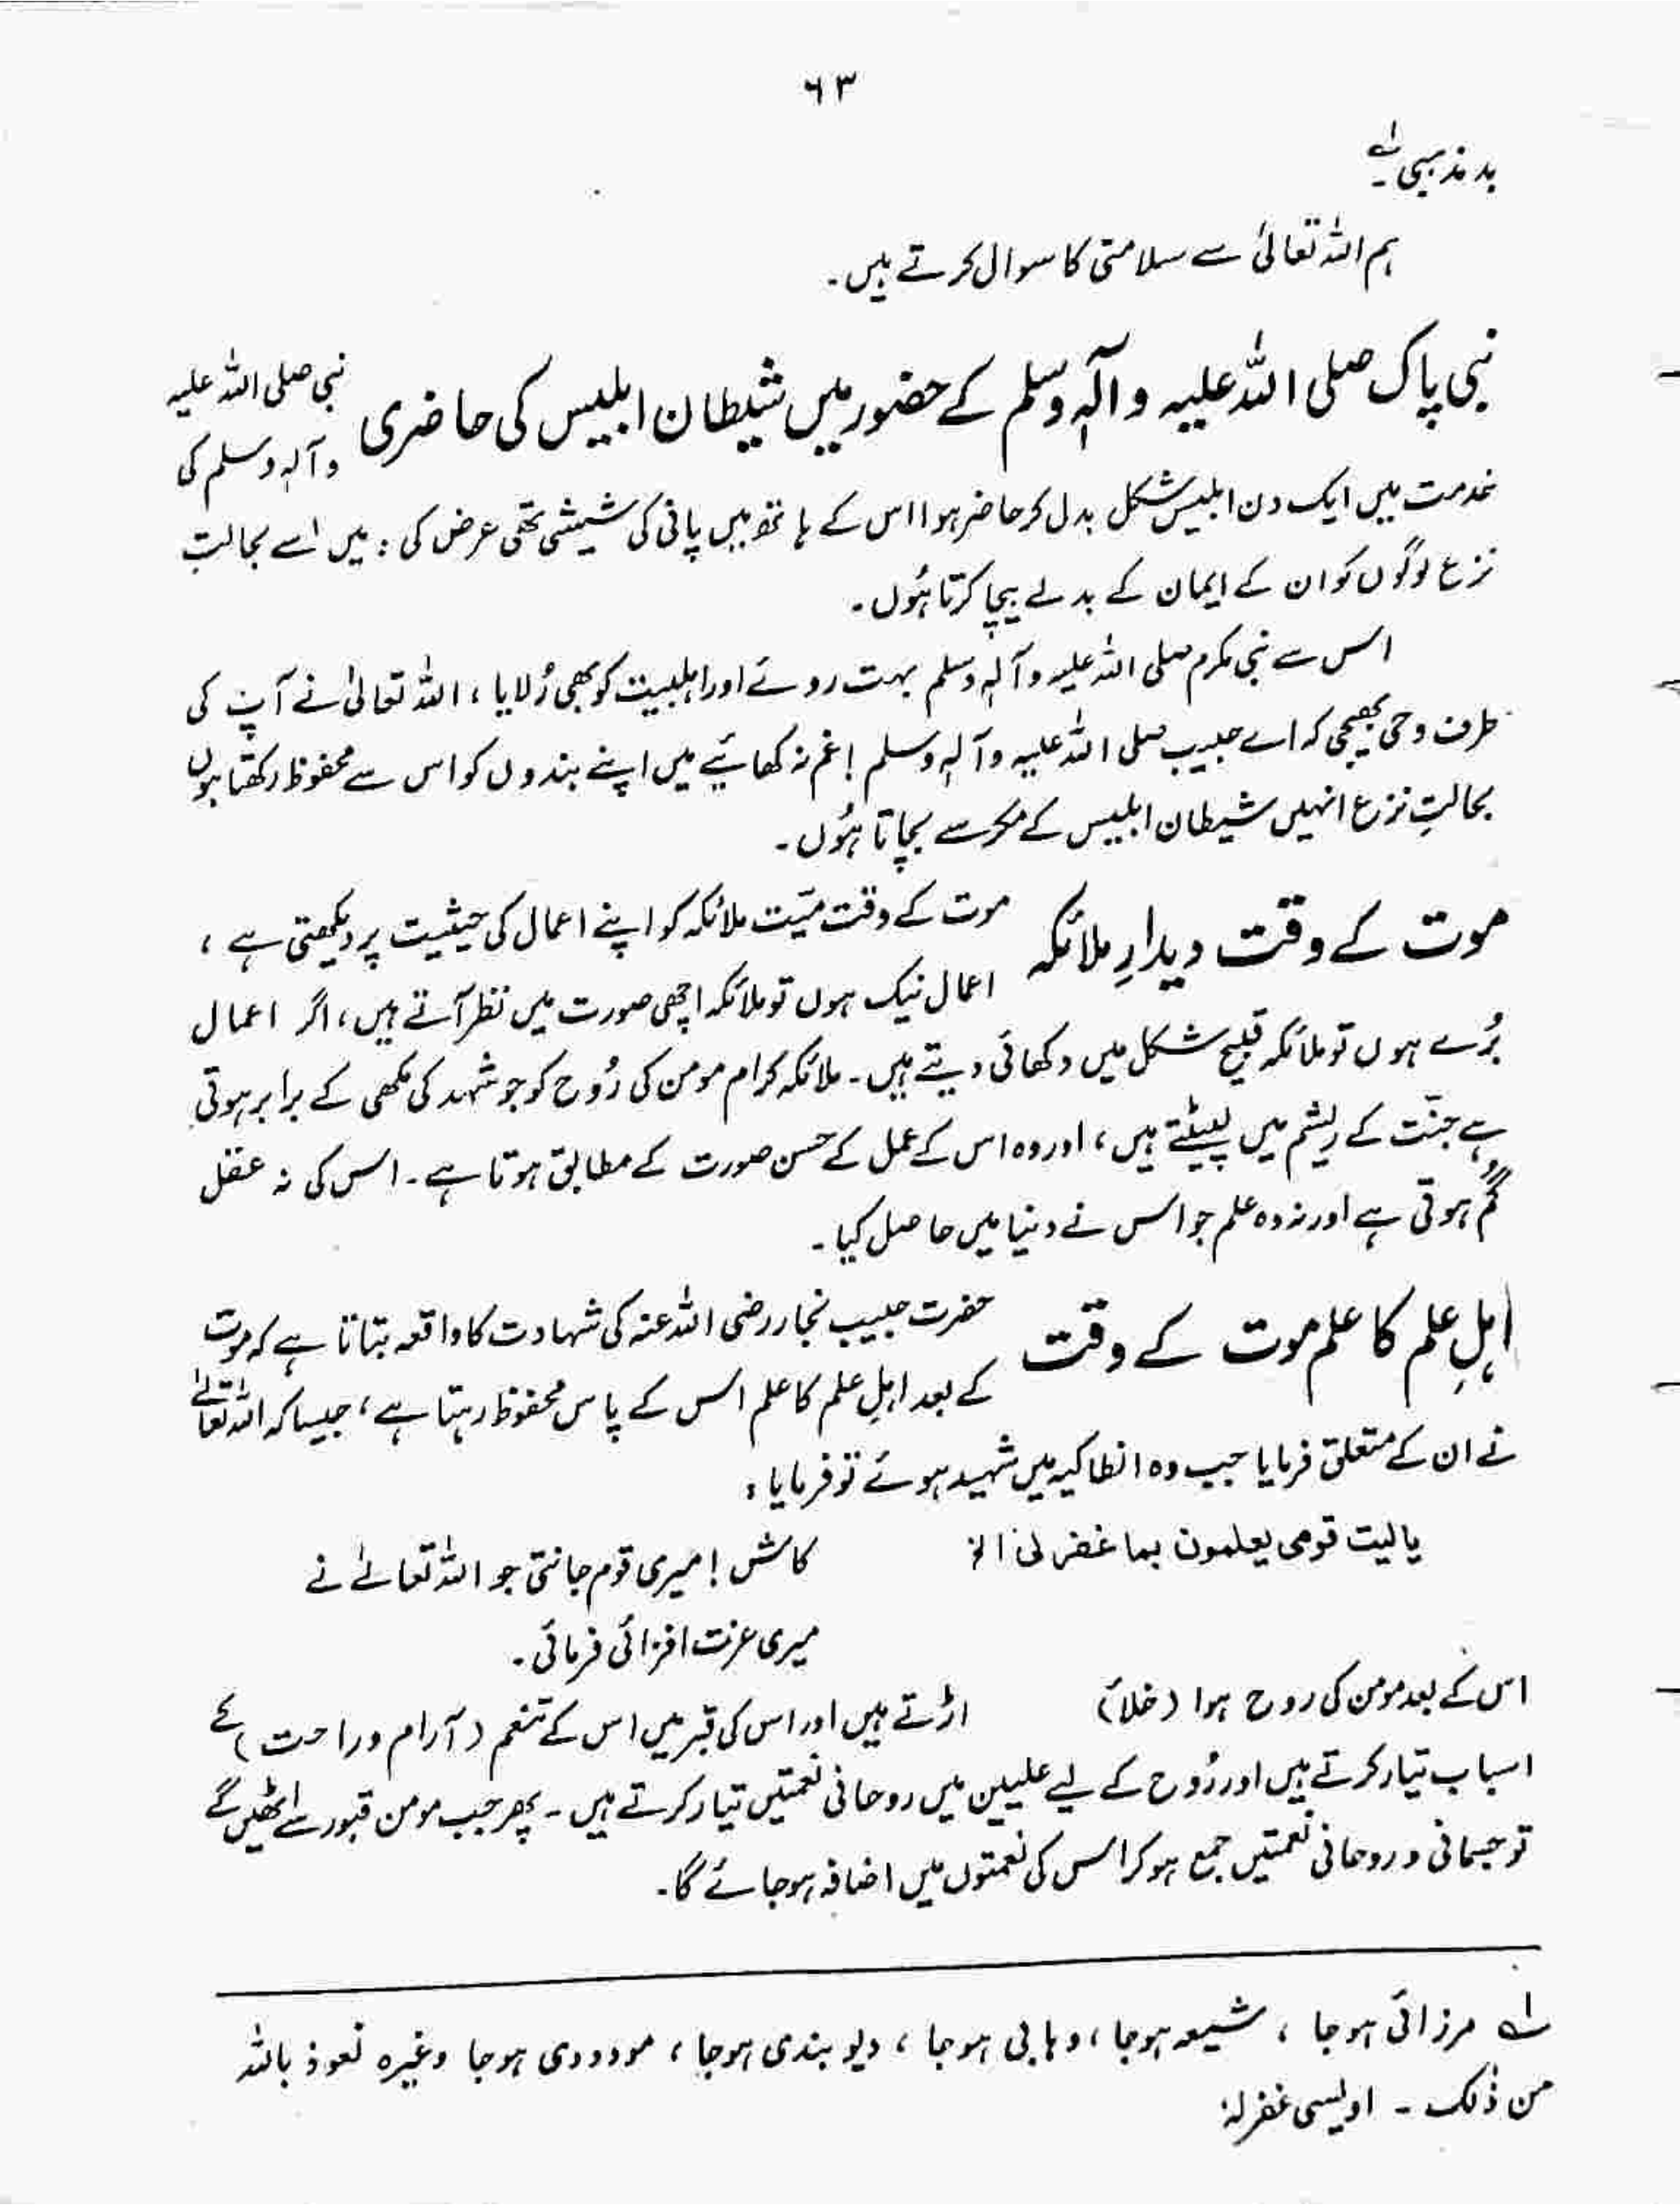 ٦٣
بد مذہبی لہ۔
ہم اللہ تعالیٰ سے سلامتی کا سوال کرتے ہیں۔
نبی پاک صلی اللہ علیہ وآلہٖ وسلم کے حضور میں شیطان ابلیس کی حاضری نبی صلی اللہ علیہ
وآلہٖ وسلم کی
خدمت میں ایک دن ابلیس شکل بدل کر حاضر ہوا اس کے ہاتھ میں پانی کی شیشی تھی عرض کی : میں اسے بحالتِ
نزع لوگوں کو ان کے ایمان کے بدلے بیچا کرتا ہُوں۔
اس سے نبی مکرم صلی اللہ علیہ وآلہٖ وسلم بہت روئے اور اہلبیت کو بھی رُلایا ، اللہ تعالیٰ نے آپ کی
طرف وحی بھیجی کہ اے حبیب صلی اللہ علیہ وآلہٖ وسلم ! غم نہ کھائیے میں اپنے بندوں کو اس سے محفوظ رکھتا ہوں
بحالتِ نزع انہیں شیطان ابلیس کے مکر سے بچاتا ہُوں۔
موت کے وقت دیدارِ ملائکہ موت کے وقت میّت ملائکہ کو اپنے اعمال کی حیثیت پر دیکھتی ہے ،
اعمال نیک ہوں تو ملائکہ اچھی صورت میں نظر آتے ہیں ، اگر اعمال
بُرے ہوں تو ملائکہ قبیح شکل میں دکھائی دیتے ہیں۔ ملائکہ کرام مومن کی رُوح کو جو شہد کی مکھی کے برابر ہوتی
ہے جنّت کے ریشم میں لپیٹتے ہیں ، اور وہ اس کے عمل کے حسن صورت کے مطابق ہوتا ہے۔ اس کی نہ عقل
گُم ہوتی ہے اور نہ وہ علم جو اس نے دنیا میں حاصل کیا۔
اہلِ علم کا علم موت کے وقت حضرت حبیب نجار رضی اللہ عنہ کی شہادت کا واقعہ بتاتا ہے کہ موت
کے بعد اہلِ علم کا علم اس کے پاس محفوظ رہتا ہے ، جیسا کہ اللہ تعالیٰ
نے ان کے متعلق فرمایا جب وہ انطاکیہ میں شہید ہوئے تو فرمایا :
یالیت قومی یعلمون بما غفر لی الخ کاش ! میری قوم جانتی جو اللہ تعالےٰ نے
میری عزت افزائی فرمائی۔
اس کے بعد مومن کی روح ہوا (خلأ) اڑتے ہیں اور اس کی قبر میں اس کے تنعم (آرام و راحت) کے
اسباب تیار کرتے ہیں اور رُوح کے لیے علیین میں روحانی نعمتیں تیار کرتے ہیں۔ پھر جب مومن قبور سے اٹھیں گے
تو جسمانی و روحانی نعمتیں جمع ہو کر اس کی نعمتوں میں اضافہ ہو جائے گا۔
لہ مرزائی ہوجا ، شیعہ ہوجا ، وہابی ہوجا ، دیوبندی ہوجا ، مودودی ہوجا وغیرہ نعوذ باللہ
من ذٰلک ۔ اویسی غفرلہٗ